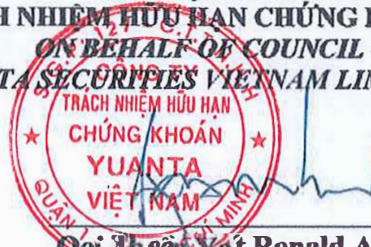 H NHIỆM HỮU HẠN CHỨNG
ON BEHALF OF COUNCIL
TA SECURITIES VIETNAM LIM
CÔNG TY
TRÁCH NHIỆM HỮU HẠN
CHỨNG KHOÁN
YUANTA
VIỆT NAM
QUẬN 1
Ronald A